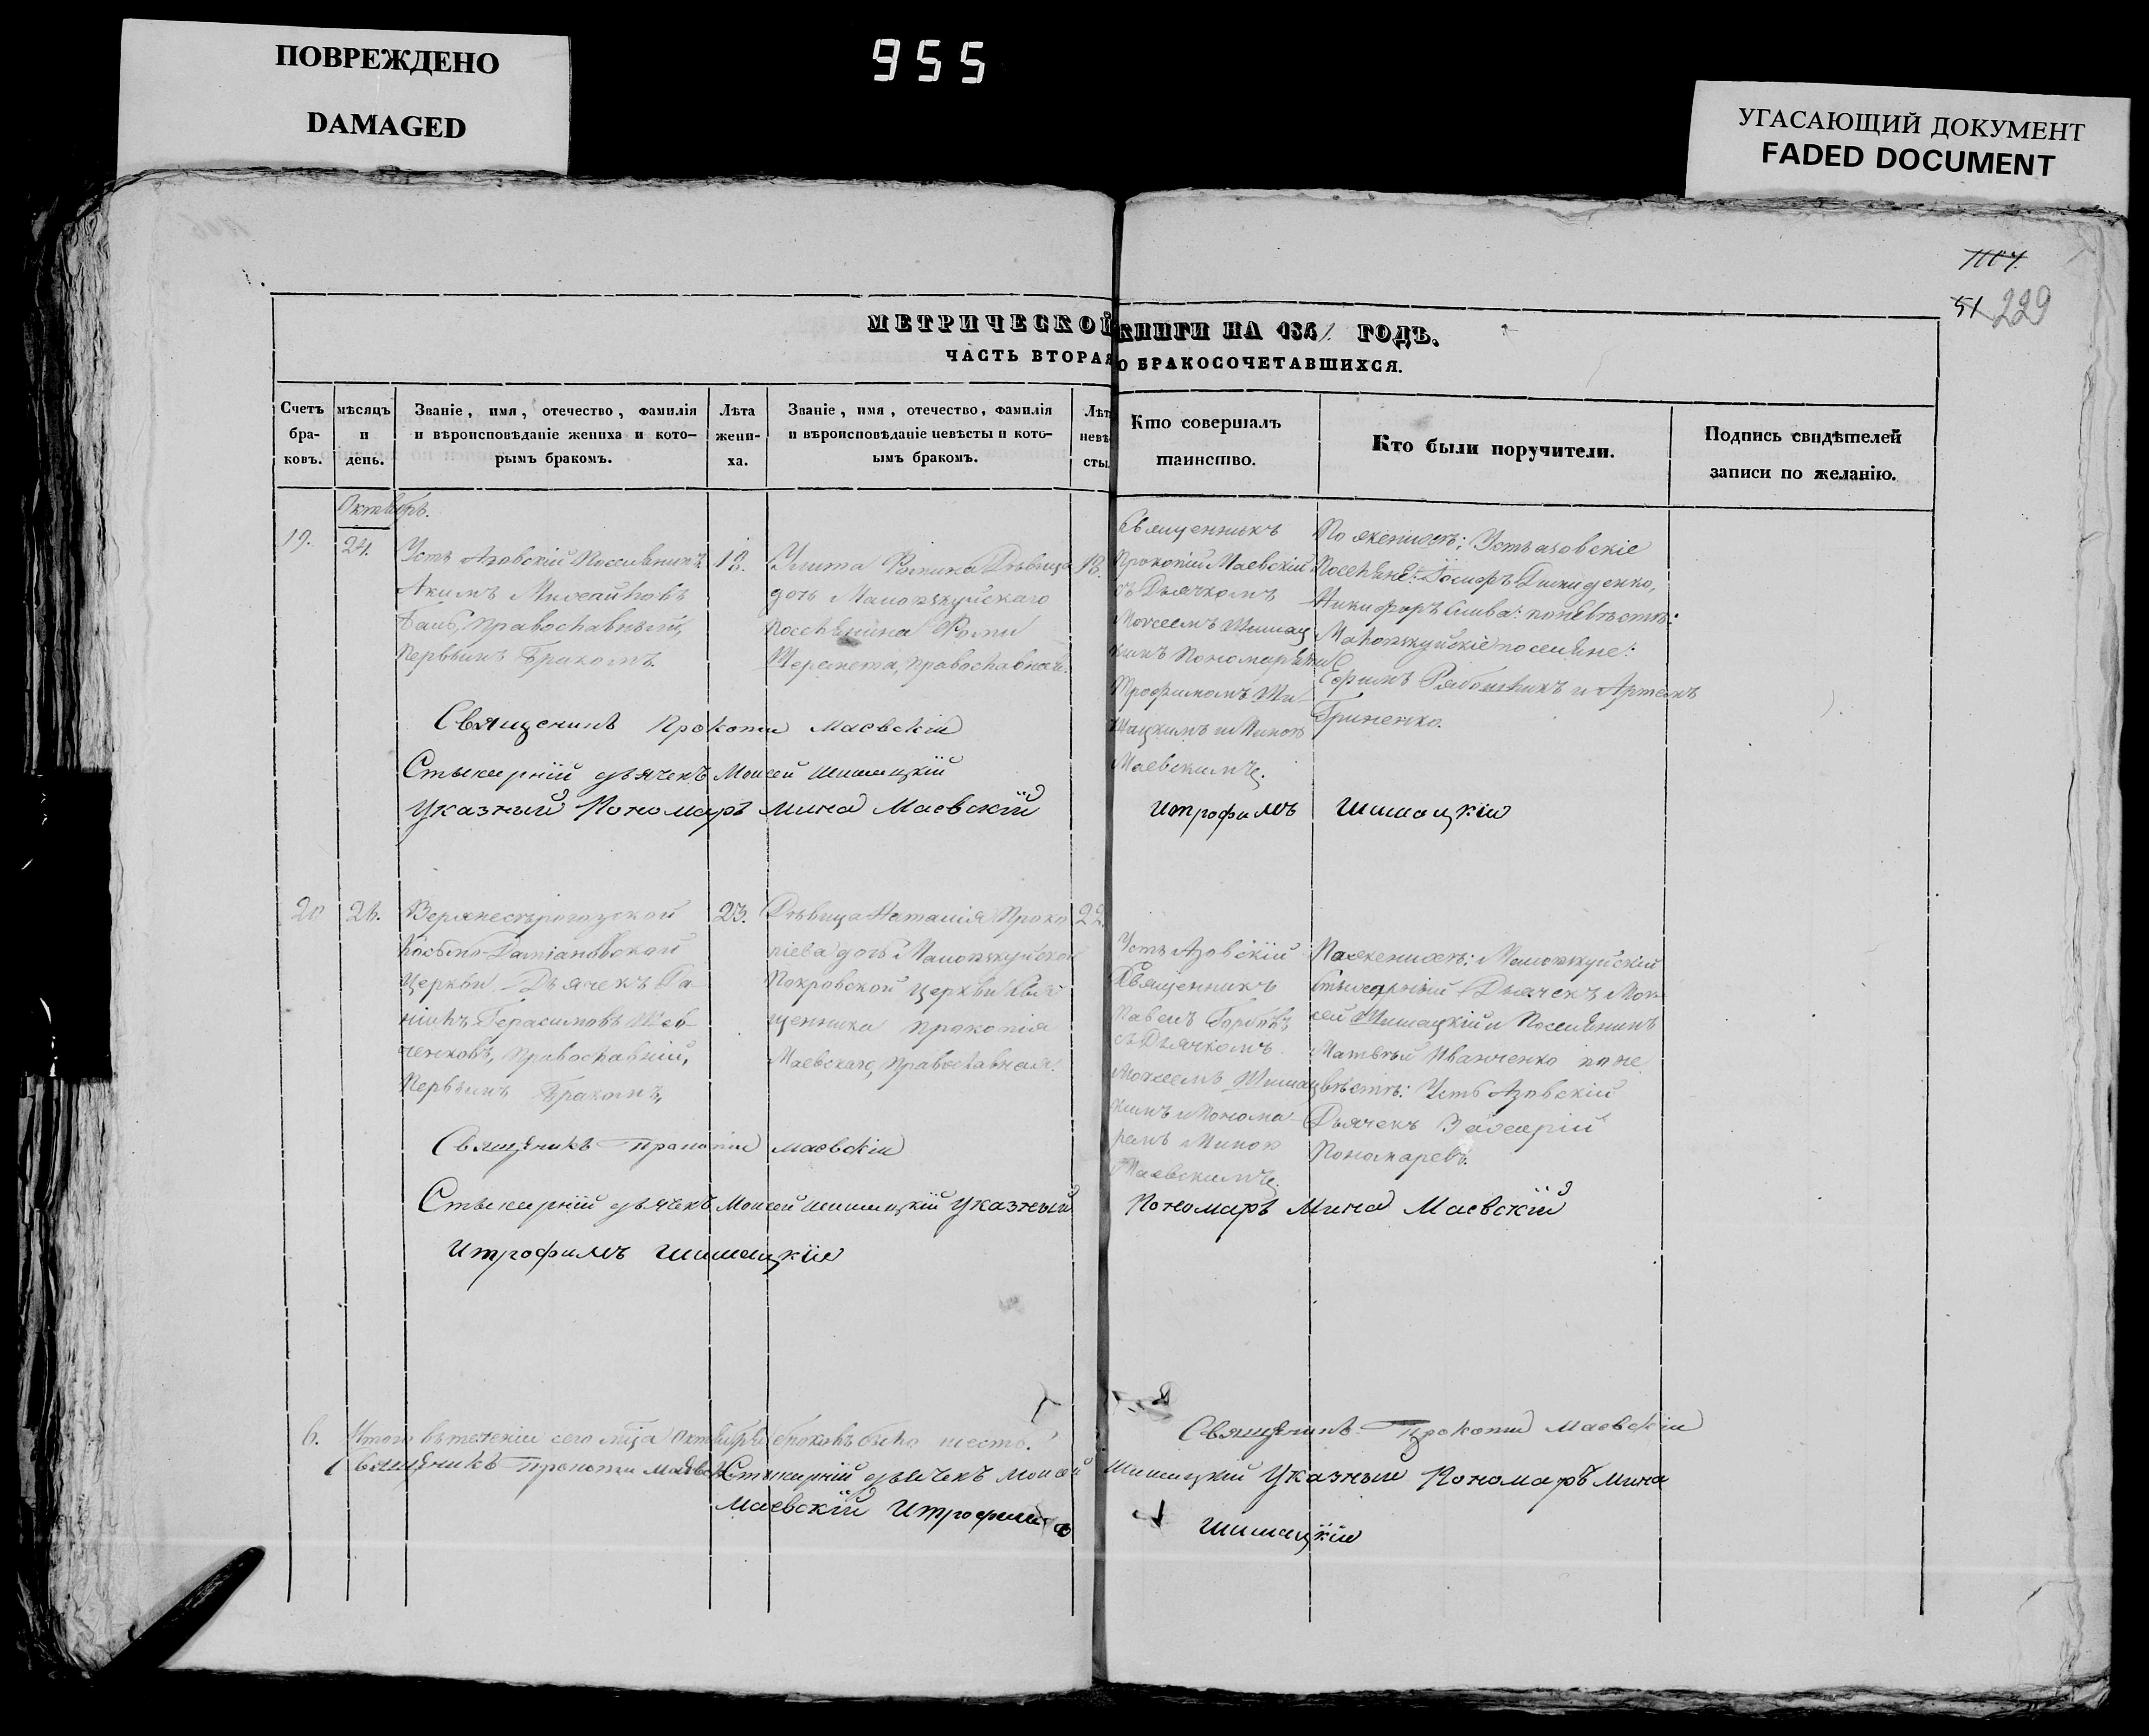 ПОВРЕЖДЕНО
DAMAGED
955
УГАСАЮЩИЙ ДОКУМЕНТ
FADED DOCUMENT
51 229
МЕТРИЧЕСКОЙ КНИГИ НА 1851 ГОДЪ.
ЧАСТЬ ВТОРАЯ О БРАКОСОЧЕТАВШИХСЯ.
Счетъ браковъ.
мѣсяцъ и день.
Званіе, имя, отечество, фамилія
и вѣроисповѣданіе жениха и кото-
рымъ бракомъ.
Лѣта
жени-
ха.
Званіе, имя, отечество, фамилія
и вѣроисповѣданіе невѣсты и кото-
ымъ бракомъ.
Лѣт
невѣ
сты.
Кто совершалъ
таинство.
Кто были поручители.
Подпись свидѣтелей
записи по желанію.
Октябрь.
19.
24.
Усть Азовскій Поселянинъ
Акимъ Михайловъ
православный,
Первымъ Бракомъ
18.
Улита Фомина Дѣвица
дочь
Поселянина Фомы
Шеремета, православная.
18.
Священникъ
Прокопій Маевскій
съ Дьячкомъ
Моисеемъ Шишац
кимъ Пономарями
Трофимомъ Ши-
шацкимъ и Миною
Маевскимъ.
По женихѣ: Устьазовскіе
Поселяне: Іосифъ
Никифоръ Слива: поневѣстѣ:
поселяне:
Ефимъ и Артемъ
Гриненко.
Священикъ Прокопи Маевски
Стыхарній дьячекъ Моисей Шишацкій
Указный Пономаръ Мина Маевскій
Итрофимъ Шишацкій
20
23.
Косьмо-Даміановской
Церкви Дьячекъ Да-
ніилъ Герасимовъ Шев-
ченковъ, православній,
Первымъ Бракомъ,
Дѣвица Наталія Проко
піева дочь
Покровской Церкви Свя
щенника Прокопія
Маевскаго, православная.
22.
Усть Азовскій
Священникъ
Павелъ
съ Дьячкомъ
Моисеемъ Шишац
кимъ и Понома-
ремъ Миною
Маевскимъ.
По женихѣ:
Стыхарный Дьячекъ Мои
сей Шишацкій и Поселянинъ
Матвѣй Иванченко по не
вѣстѣ: Усть Азовскій
Дьячекъ Захарій
Пономаревъ.
Священикъ Прокопи Маевски
Стыхарній дьячекъ Моисей Шишацкій Указный Пономаръ Мина Маевскій
Итрофимъ Шишацкій
6. Итого въ теченіи сего мѣсяца Октября браковъ было шесть.
Священикъ Прокопи Маевски
Священикъ Прокопи Маевски
Стыхарній дьячекъ Моисей Шишацкій Указный Пономаръ Мина
Маевскій Итрофимъ Шишацкій